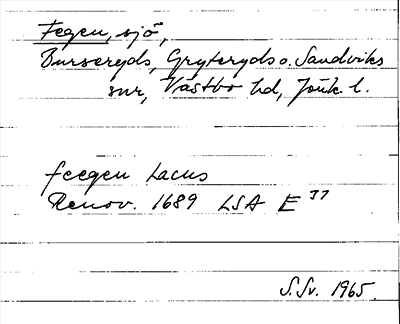 Fegen, sjö,
Burseryds, Gryteryds o. Sandviks
snr, Västbo hd, Jönk l.
feegen Lacus
Renov. 1689 LSA E 37
S.Sv. 1965.